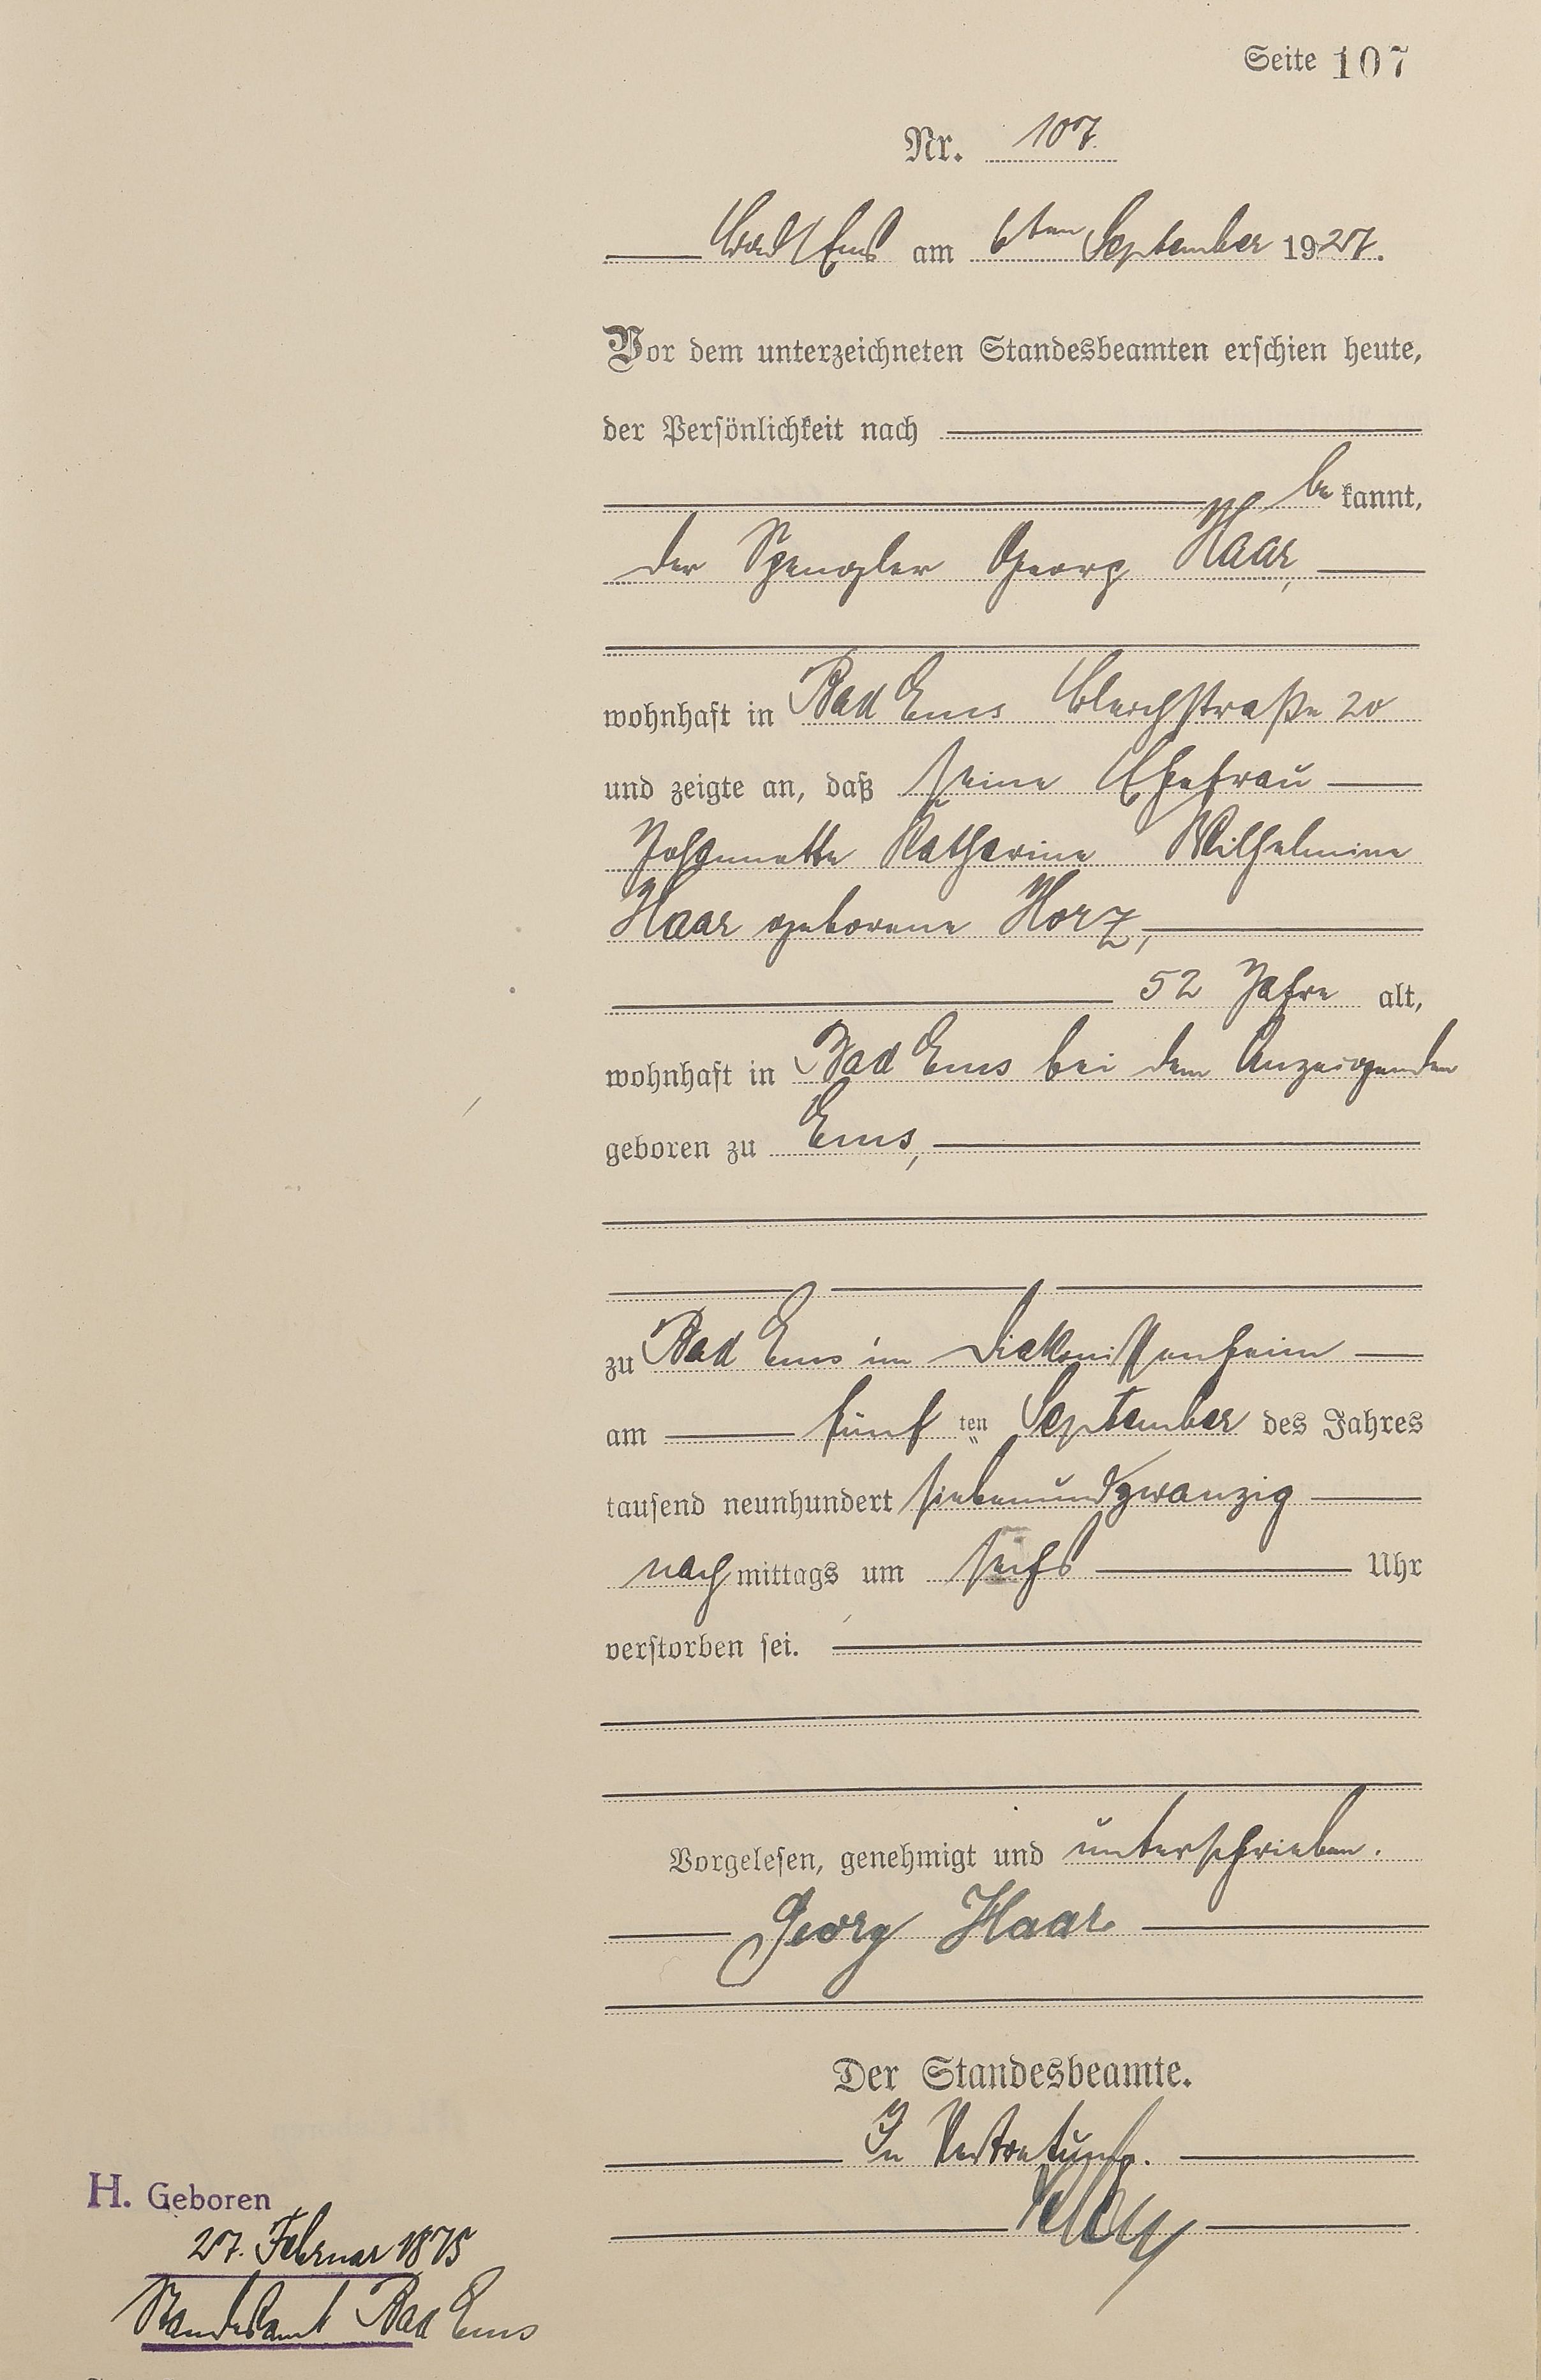 Seite 107
Nr. 107.
Bad Ems am 6ten September 1927.
Vor dem unterzeichneten Standesbeamten erschien heute,
der Persönlichkeit nach
be kannt,
der Spengler Georg Haar,
wohnhaft in Bad Ems Bleichstraße 20
und zeigte an, daß seine Ehefrau
Johannette Katharine Wilhelmine
Haar geborene Horz,
52 Jahre alt,
wohnhaft in Bad Ems bei dem Anzeigenden
geboren zu Ems,
zu Bad Ems im Diakonissenheim
am fünf ten September des Jahres
tausend neunhundert siebenundzwanzig
nach mittags um sechs Uhr
verstorben sei.
Vorgelesen, genehmigt und unterschrieben.
Georg Haar
Der Standesbeamte.
In Vertretung.
H. Geboren
27. Februar 1875
Standesamt Bad Ems